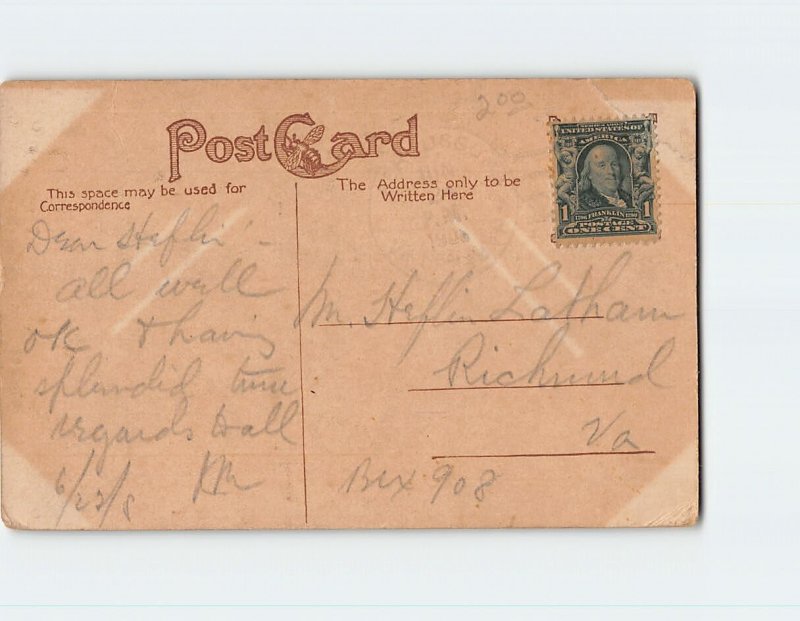 2 00
Post Card
This space may be used for
Correspondence
The Address only to be
Written Here
SERIES 1902
UNITED STATES OF
AMERICA
1706 FRANKLIN 1790
1 POSTAGE 1
ONE CENT
Dear Heflin -
all well
OK & having
splendid time
regards to all
6/23/8
Mr. Heflin Latham
Richmond
Va
Box 908